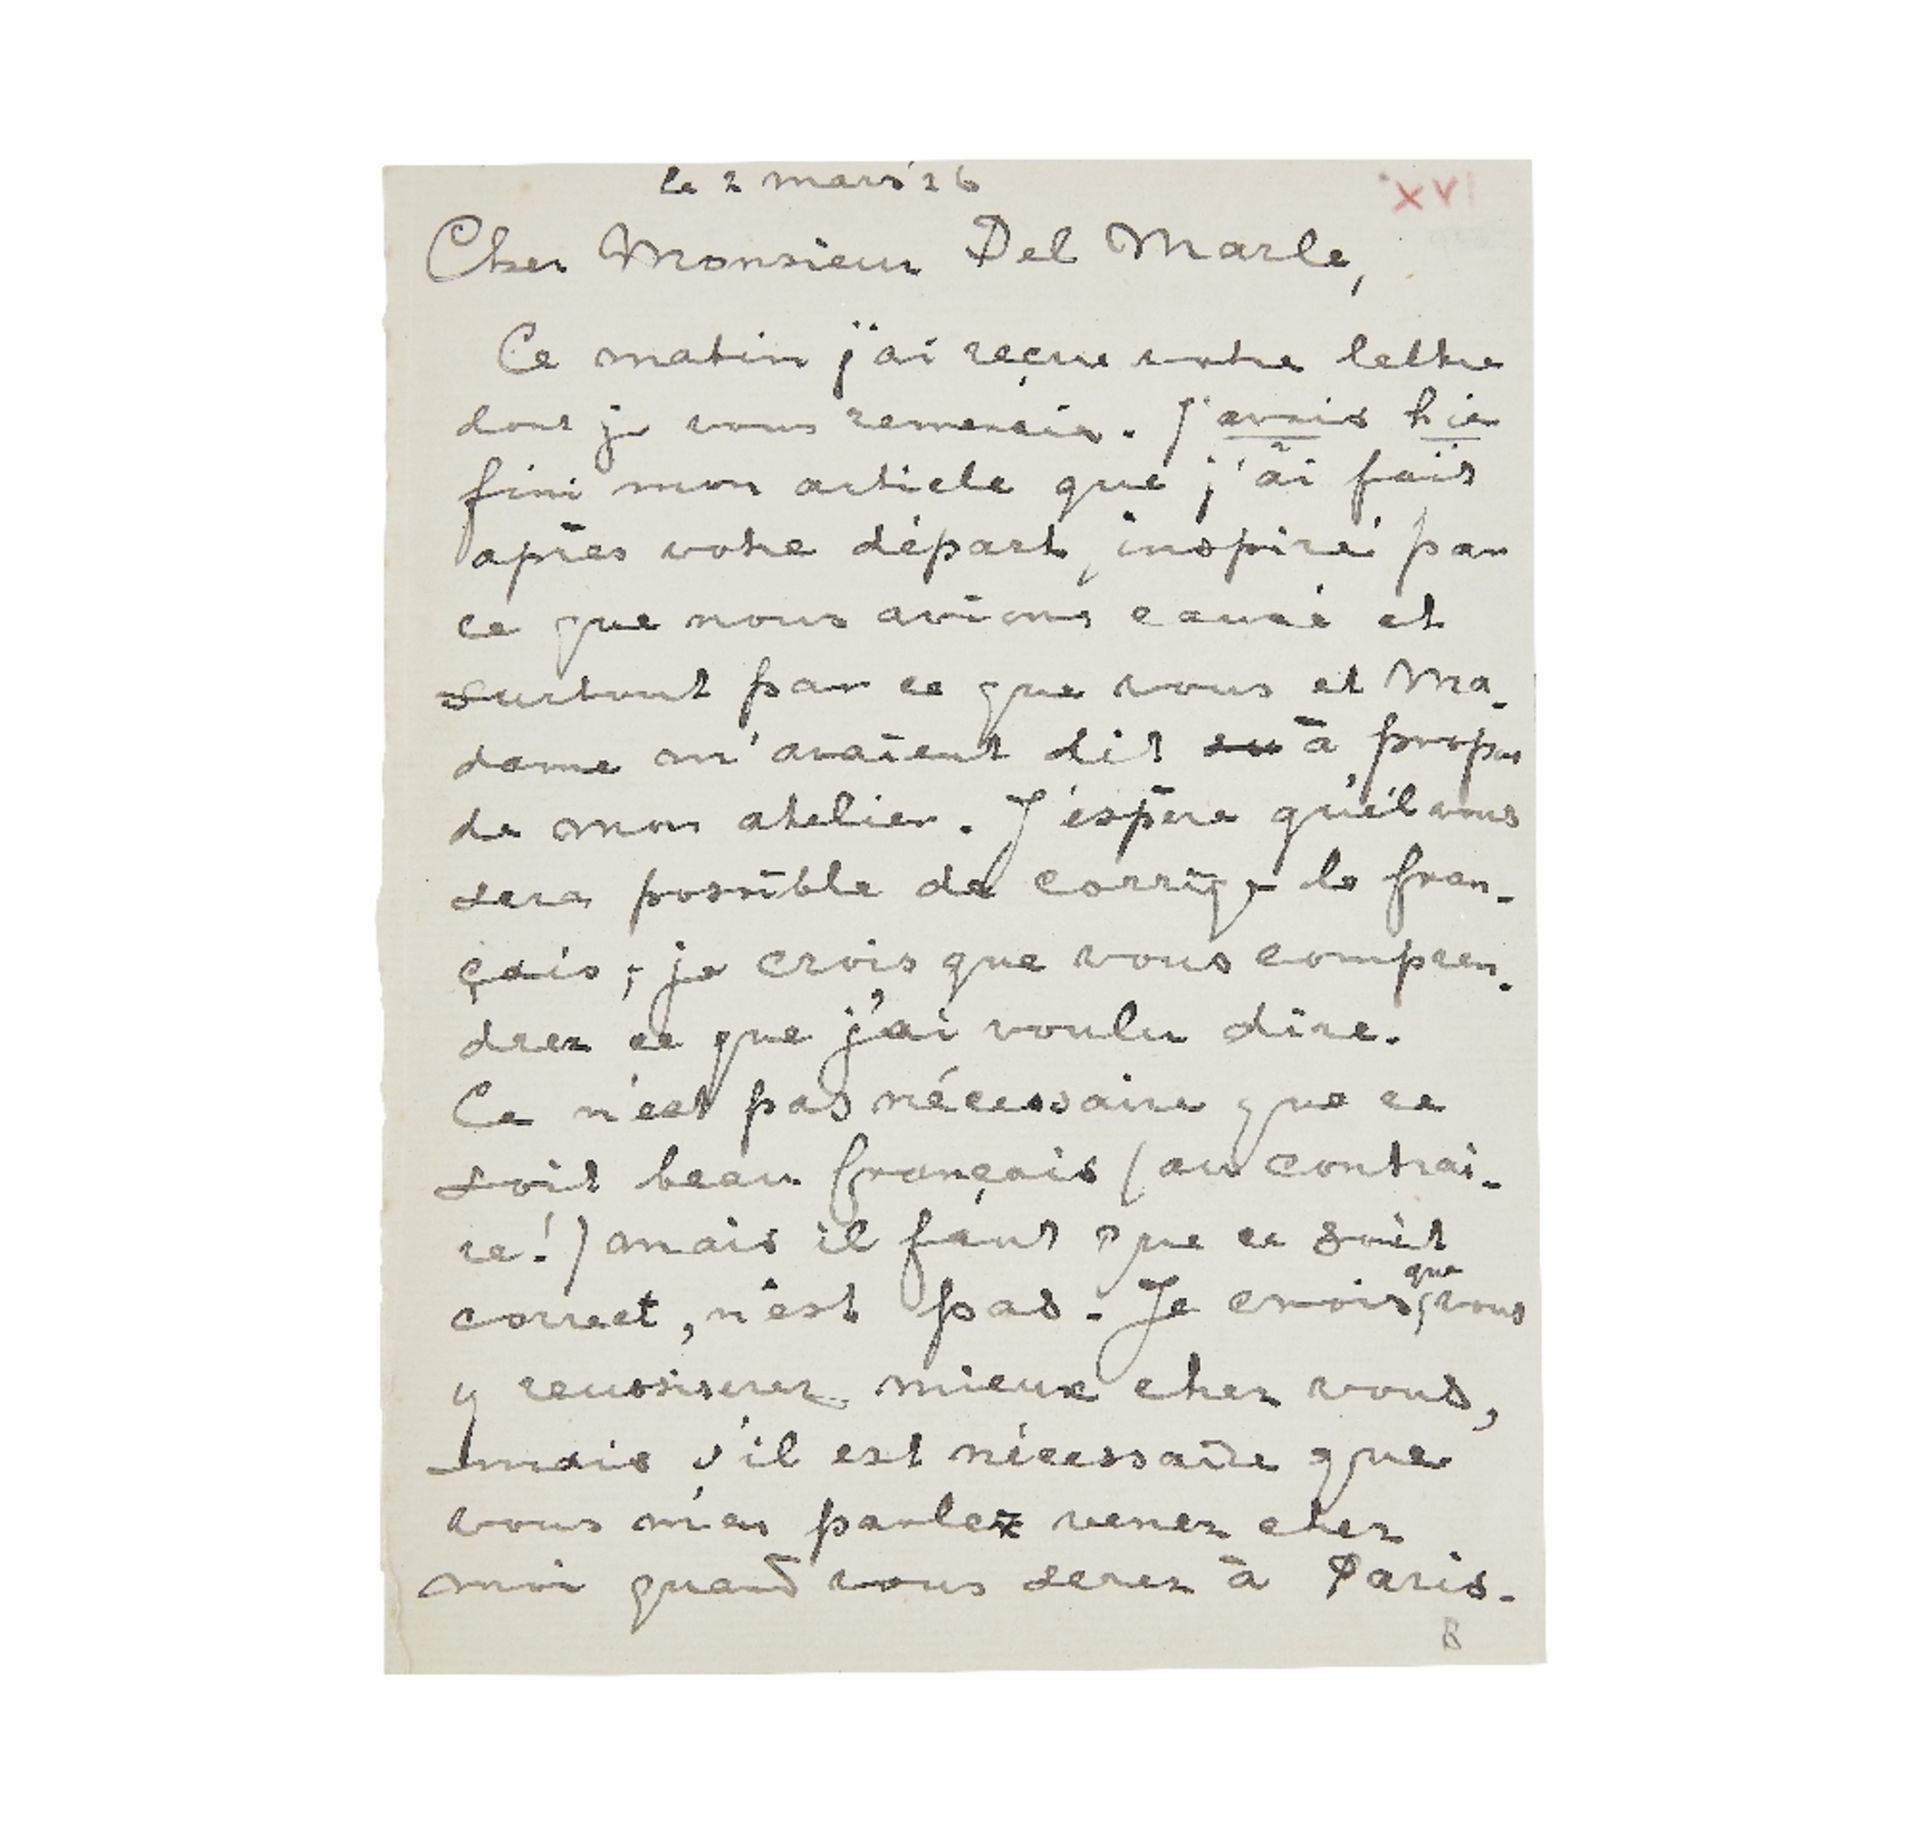 le 2 mars '26
XVI
Cher Monsieur Del Marle,
Ce matin j'ai reçue votre lettre
dont je vous remercie. J'avais hier
fini mon article que j'ai fais
après votre départ, inspiré par
ce que nous avions causé et
surtout par ce que vous et Ma-
dame m'avaient dit à propos
de mon atelier. J'espère qu'il vous
sera possible de corriger le fran-
çais, je crois que vous compren-
drez ce que j'ai voulu dire.
Ce n'est pas nécessaire que ce
soit beau français (au contrai-
re!) mais il faut que ce soit
correct, n'est pas. Je crois que vous
y reussiserez mieux chez vous,
mais s'il est nécessaire que
vous m'en parlez venez chez
moi quand vous serez à Paris.
B